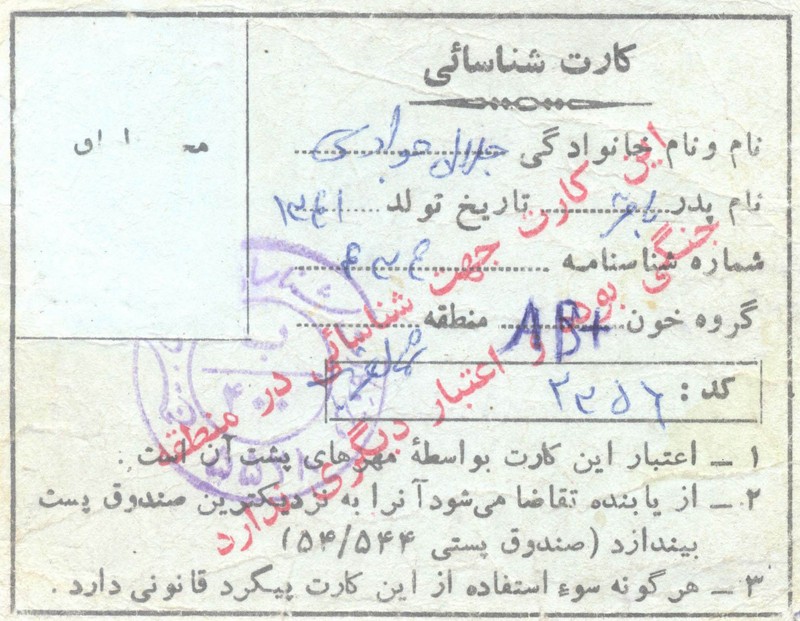 کارت شناسائی
نام و نام خانوادگی جلال جوادی
نام پدر باقر تاریخ تولد ۱۳۴۱
شماره شناسنامه ۴۳۴
گروه خون AB+ منطقه
کد: ۲۳۵۶
۱ – اعتبار این کارت بواسطهٔ مهرهای پشت آن است.
۲ – از یابنده تقاضا می‌شود آنرا به نزدیکترین صندوق پست
بیندازد (صندوق پستی ۵۴/۵۴۴)
۳ – هرگونه سوء استفاده از این کارت پیگرد قانونی دارد.
این کارت جهت شناسائی در منطقه
جنگی بوده و اعتبار دیگری ندارد